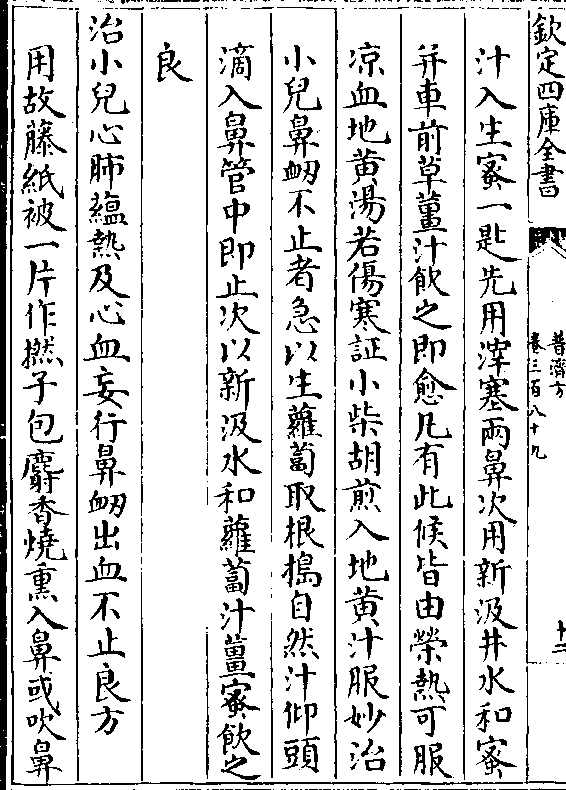 欽定四庫全書
普濟方
卷三百八十九
十二
汁入生蜜一匙先用滓塞兩鼻次用新汲井水和蜜
并車前草薑汁飲之即愈凡有此候皆由榮熱可服
凉血地黄湯若傷寒証小柴胡煎入地黄汁服妙治
小兒鼻衂不止者急以生蘿蔔取根搗自然汁仰頭
滴入鼻管中即止次以新汲水和蘿蔔汁薑蜜飲之
良
治小兒心肺蘊熱及心血妄行鼻衂出血不止良方
用故藤紙被一片作撚子包麝香燒熏入鼻或吹鼻